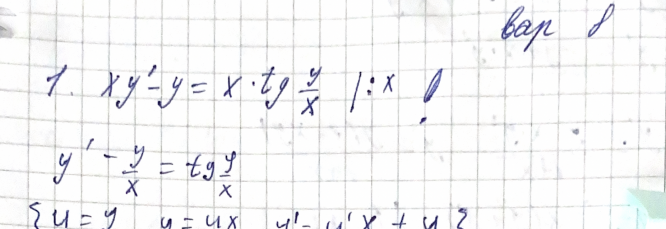 вар 8
1. xy' - y = x · tg y/x | : x !
y' - y/x = tg y/x
{u = y y = ux y' = u'x + u}